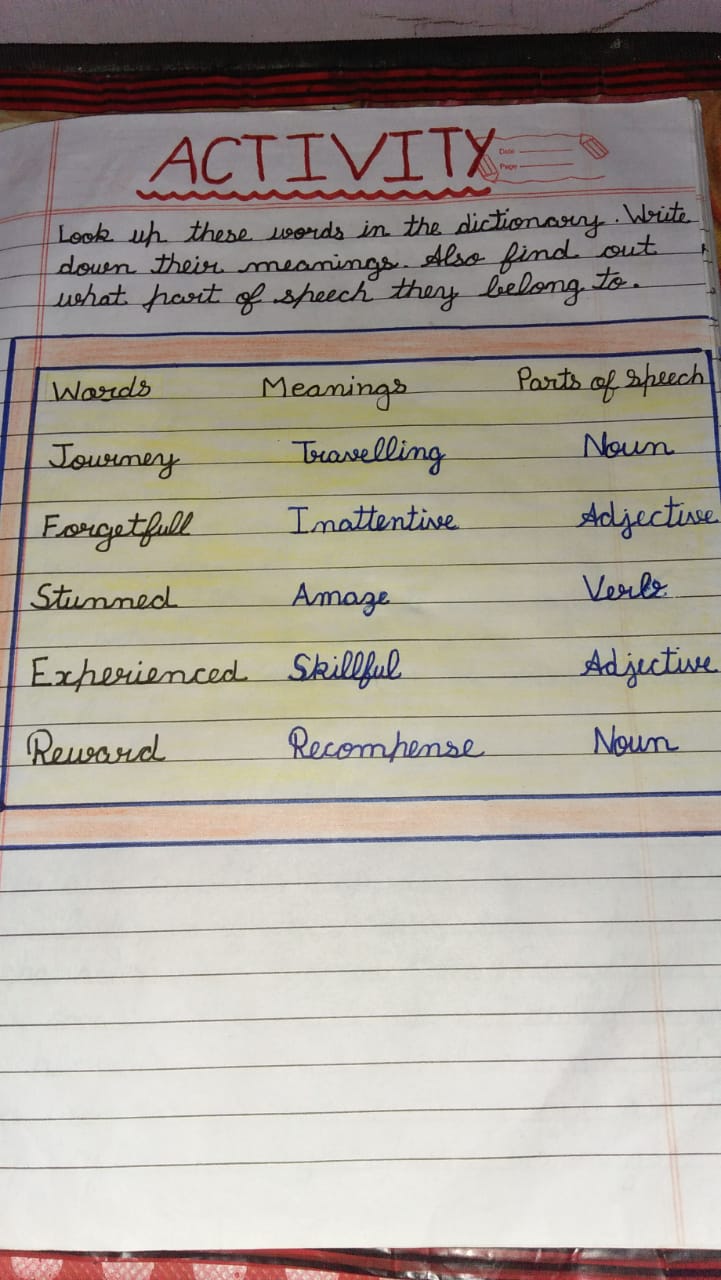 ACTIVITY
Date
Page
Look up these words in the dictionary. Write
down their meanings. Also find out
what part of speech they belong to.
Words Meanings Parts of speech
Journey Travelling Noun
Forgetfull Inattentive Adjective
Stunned Amaze Verb
Experienced Skillful Adjective
Reward Recompense Noun